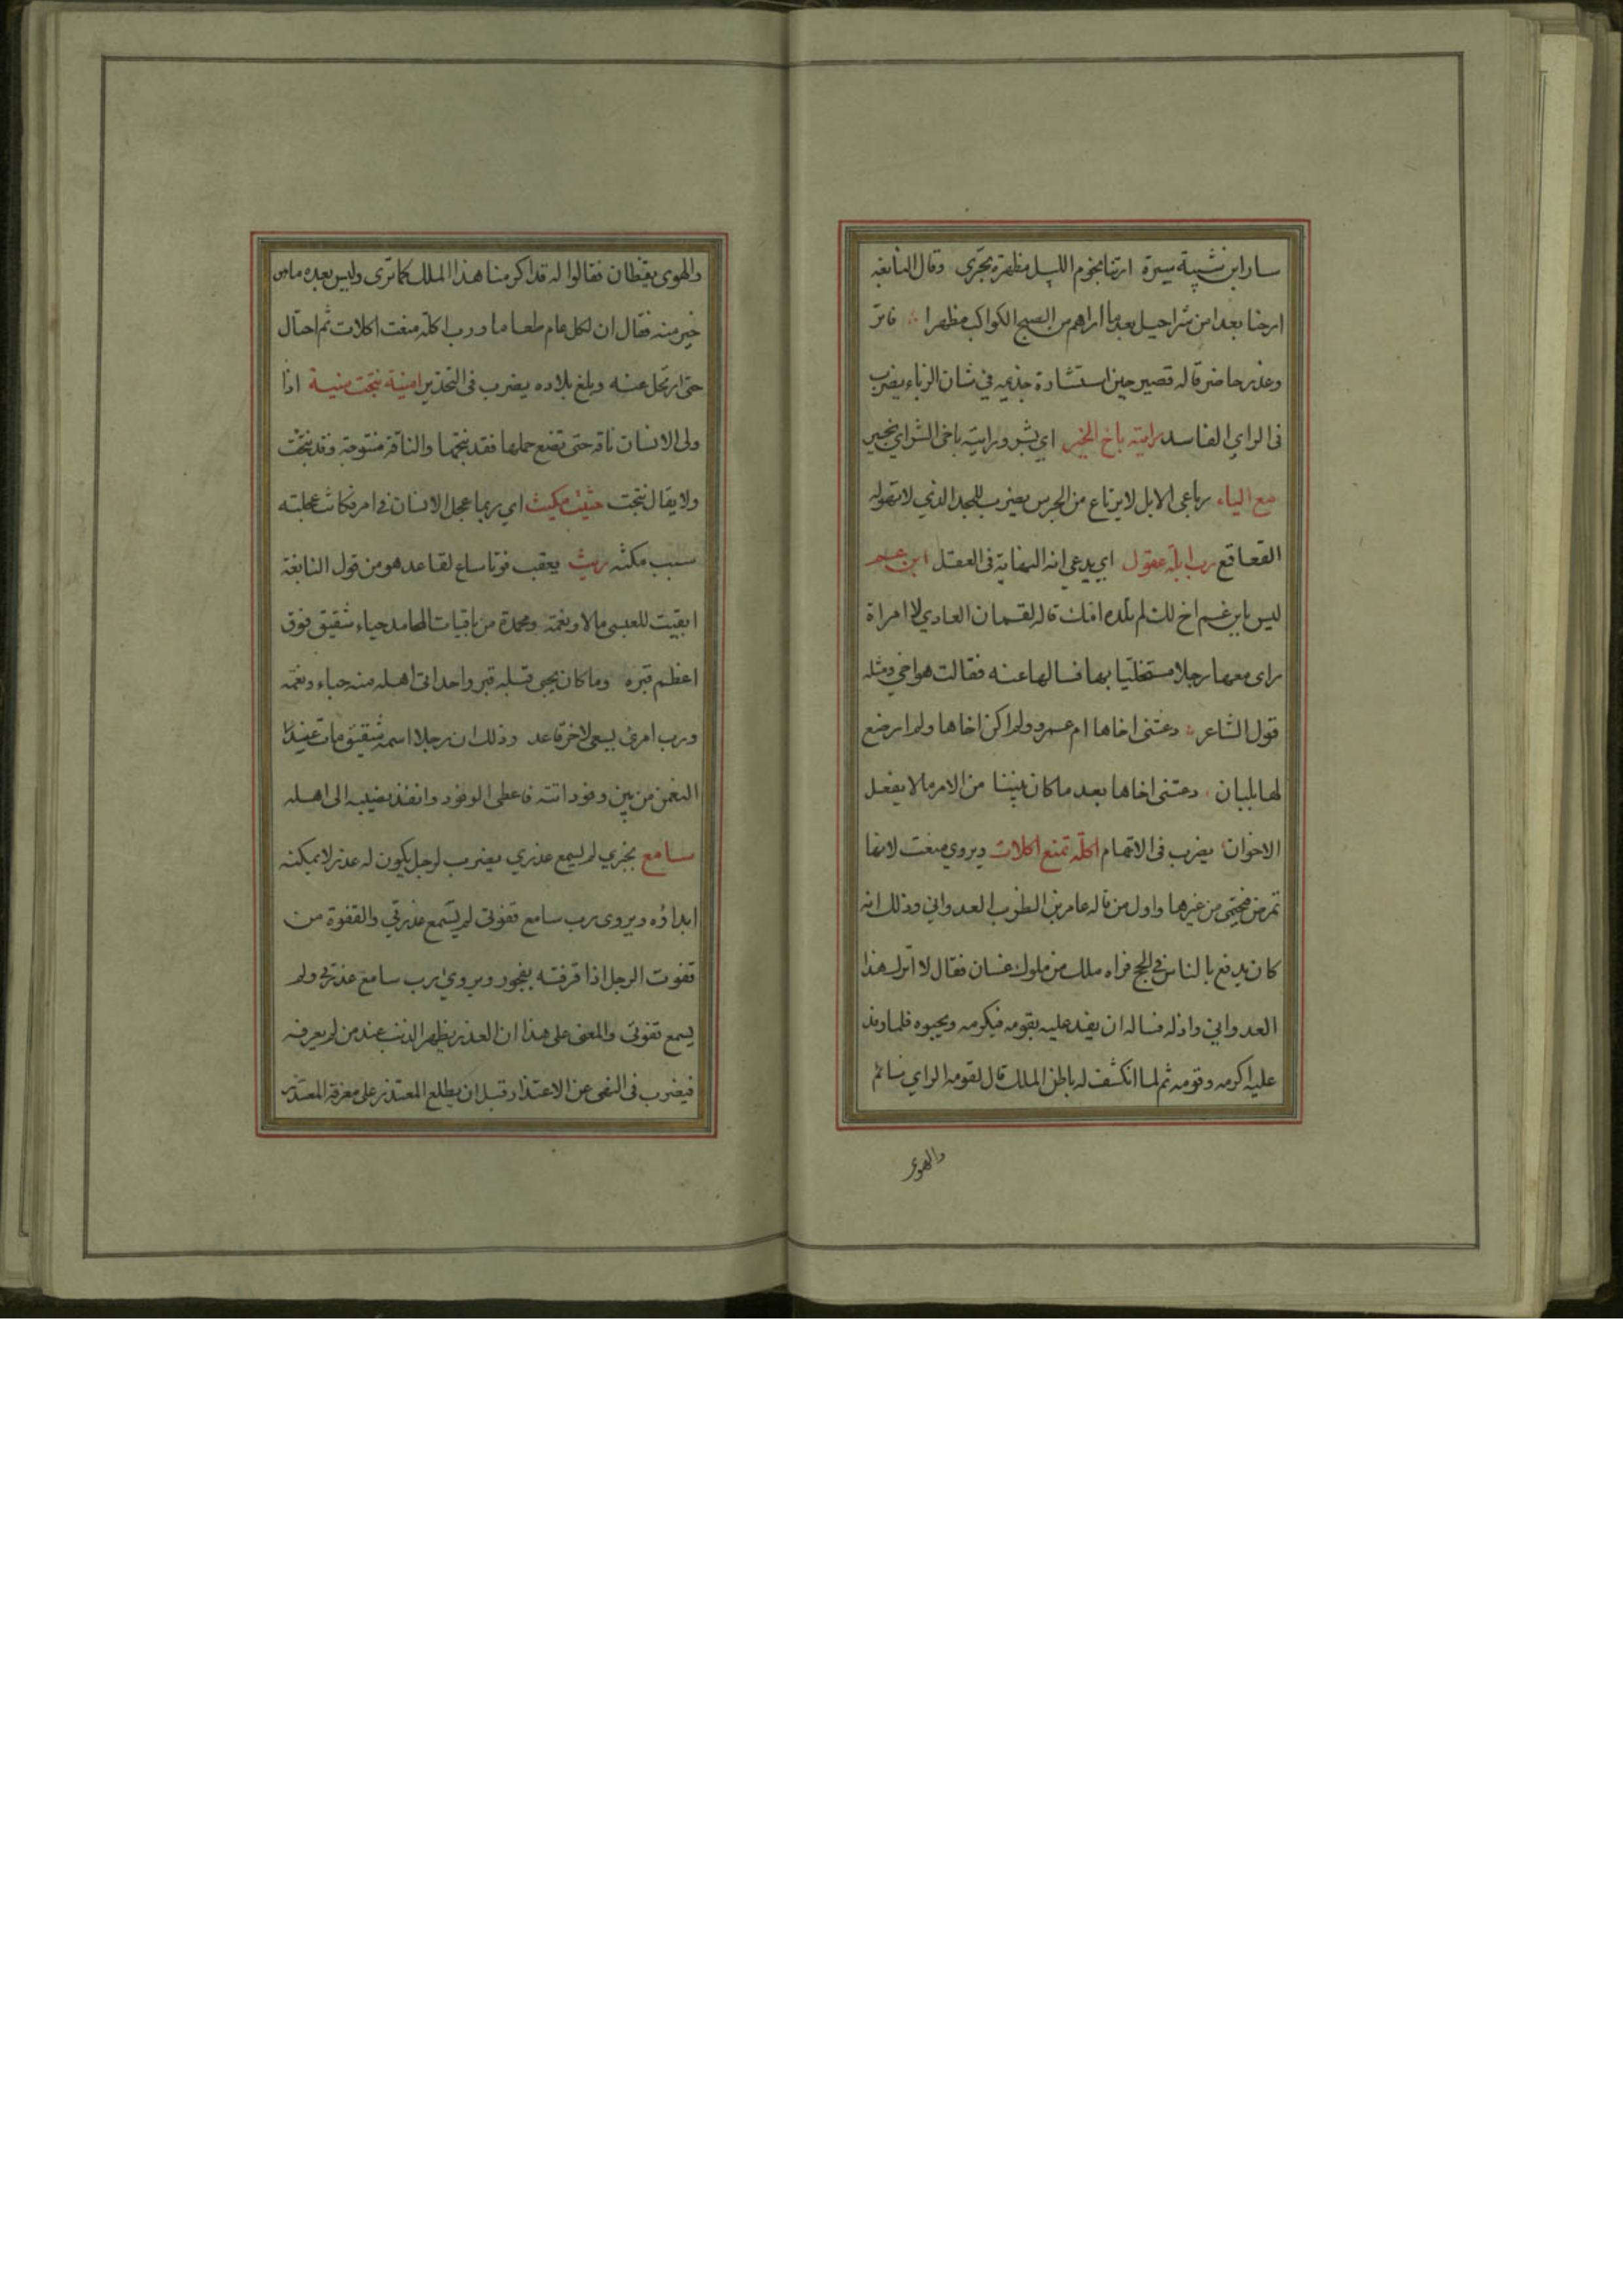 سار ابن شيبة سيرة ارتنا نجوم الليل مظهرة تجري وقال النابغه
ارحنا بعدا من شراحيل بعد ما اراهم من الصبح الكواكب مظهرا فاتر
وغذر حاضر قاله قصير حين استشارة جذيمه في شان الزباء يضرب
فى الراي الفاسد رايته باخ الخير اي بشر ورايته باخى الشر اي بخير
مع الياء رباعى الابل لا يرتاع من الجرس يضرب للجد الذي لا تهوله
القعاقع رب ابلة عقول اي يدعي انه النهاية فى العقل ابن عم
ليس بابن عم اخ لك لم تلده امك قاله لقمان العادي لا امراة
راى معها رجلا مستخليا بها فسالها عنه فقالت هو اخي ومثله
قول الشاعر دعتنى اخاها ام عمرو ولم اكن اخاها ولم ارضع
لها بلبان دعتنى اخاها بعد ما كان بيننا من الامر مالا يفعل
الاخوان يضرب فى الاتهام اكلة تمنع اكلات ويروي منعت لانها
تمرض فيحتمى من غيرها واول من قاله عامر بن الظرب العدواني وذلك انه
كان يدفع بالناس في الحج فراه ملك من ملوك غسان فقال لا اترك هذا
العدواني واذله فساله ان يفد عليه بقومه فيكرمه ويحبوه فلما وفد
عليه اكرمه وقومه ثم لما انكشف له باطن الملك قال لقومه الراي نائم
والهوى
والهوى يقظان فقالوا له قد اكرمنا هذا الملك كما ترى وليس بعده ما هو
خير منه فقال ان لكل عام طعاما ورب اكلة منعت اكلات ثم احتال
حتى ارتحل عنه وبلغ بلاده يضرب فى التحذير امنية نتجت منية اذا
ولى الانسان ناقه حتى تضع حملها فقد نتجها والناقة منتوجة وقد نتجت
ولا يقال نتجت حثيث مكيث اي ربما عجل الانسان في امر فكانت عجلته
سبب مكثه ريث يعقب فوتا ساع لقاعد هو من قول النابغة
ابقيت للعبسى مالا ونعمة ومحمدة من باقيات المحامد حباء شقيق فوق
اعظم قبره وما كان يحبى قبله قبر واحد اتى اهله منه حباء ونعمه
ورب امرئ يسعى لاخر قاعد وذلك ان رجلا اسمه شقيق مات عند
النعمن من بين وفود اتته فاعطى الوفود وانفذ نصيبه الى اهله
سامع بخبري لم يسمع عذري يضرب لرجل يكون له عذر لا يمكنه
ابداؤه ويروى رب سامع قفوتي لم يسمع عذرتي والقفوة من
قفوت الرجل اذا قرفته بفجور ويروي رب سامع عذرتي ولم
يسمع قفوتي والمعنى على هذا ان العذر يظهر الذنب عند من لم يعرفه
فيضرب فى النهى عن الاعتذار قبل ان يطلع المعتذر على معرفة المعتذر